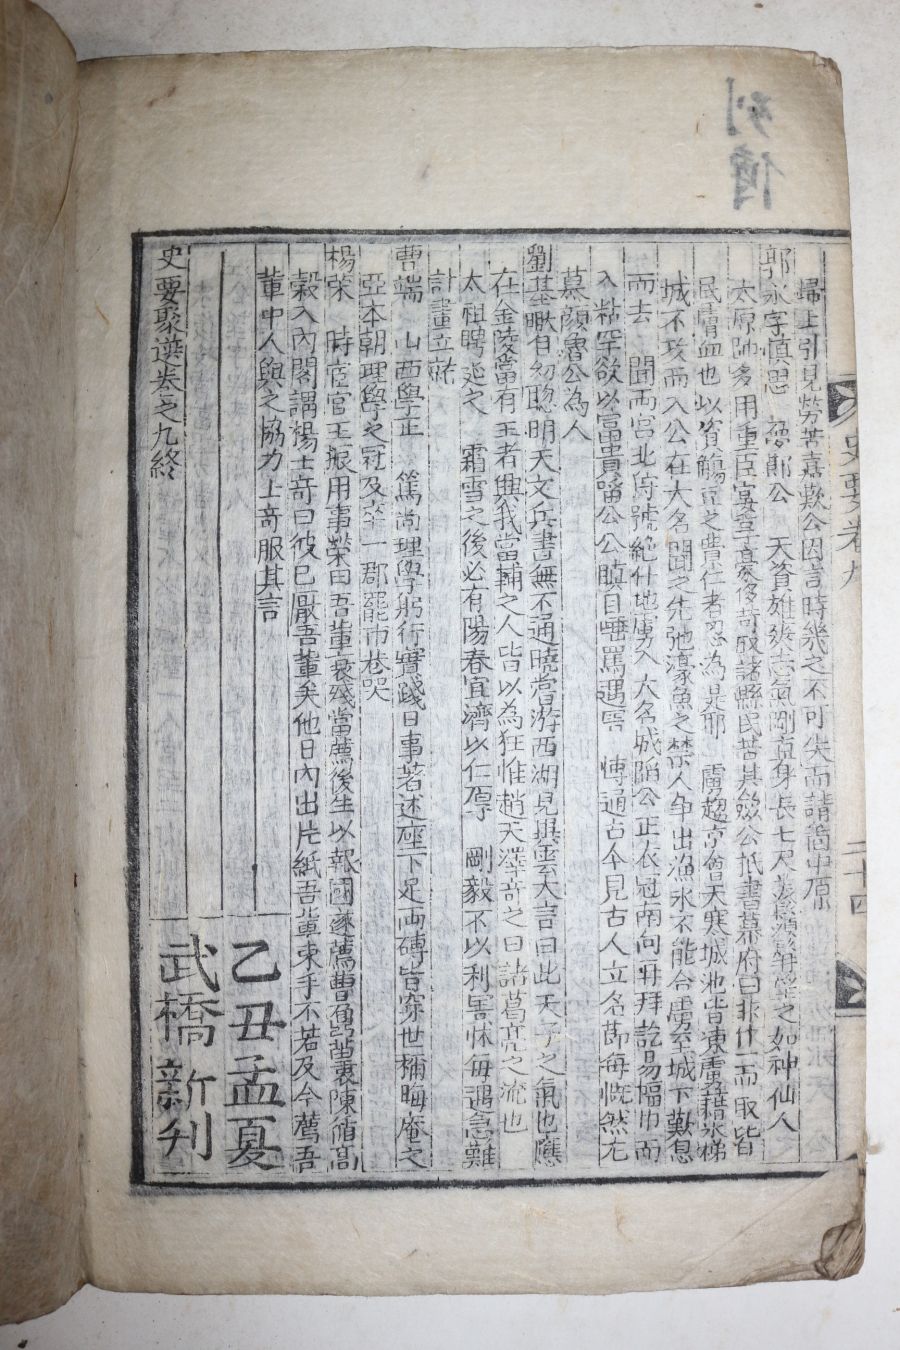 列傳
歸上引見勞苦嘉歎公因言時幾之不可失而請啚中原
郭永字愼思 忠節公 天資雄爽志氣剛直身長七尺美鬚髥望之如神仙人
太原帥多用重臣宴享豪侈苛取諸縣民苦其斂公抵書幕府曰非什一而取皆
民膏血也以資觴豆之費仁者忍為是耶 虜趨京會天寒城池皆凍虜藉氷梯
城不攻而入公在大名聞之先弛濠魚之禁人爭出漁氷不能合虜至城下歎息
而去 聞兩宮北狩號絶仆地虜入大名城陷公正衣冠南向再拜訖易幅巾而
入粘罕欲以富貴啗公公瞋目唾罵遇害 博通古今見古人立名節每慨然尤
慕顏魯公為人
劉基畷自幼聰明天文兵書無不通曉嘗游西湖見異雲大言曰此天子之氣也應
在金陵當有王者興我當輔之人皆以為狂惟趙天澤奇之曰諸葛亮之流也
太祖聘延之 霜雪之後必有陽春宜濟以仁厚 剛毅不以利害怵每遇急難
計畫立就
曹端 山西學正 篤尚理學躬行實踐日事著述座下足兩磚皆穿世稱晦庵之
亞本朝理學之冠及卒一郡罷市巷哭
楊榮 時宦官王振用事榮曰吾輩衰殘當薦後生以報國遂薦曹鼐苗衷陳循高
穀入內閣謂楊士奇曰彼已厭吾輩矣他日內出片紙吾輩束手不若及今薦吾
輩中人與之協力士奇服其言
史要聚選卷之九終
乙丑孟夏
武橋新刊
史要卷九
二十四